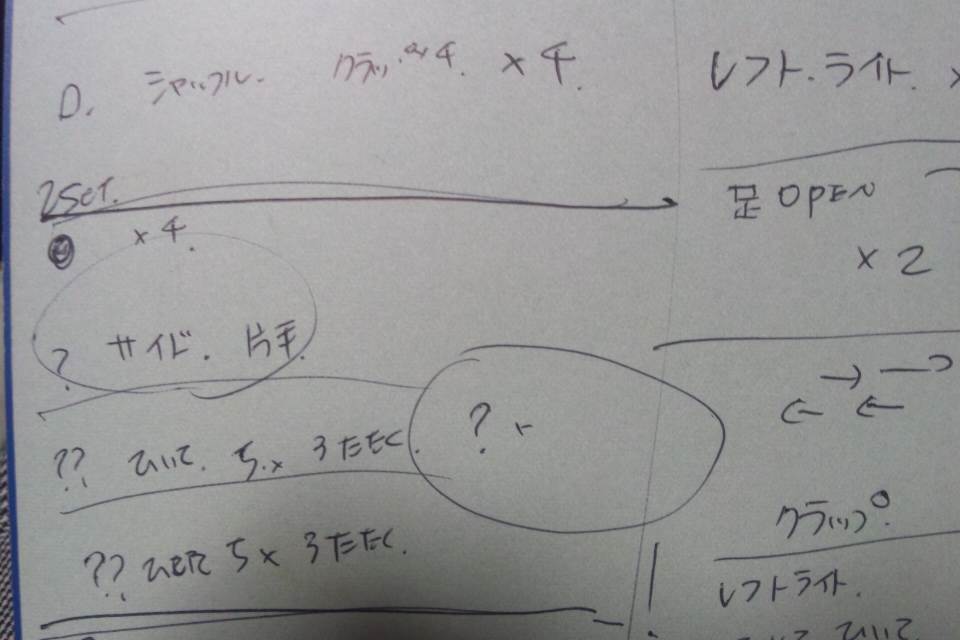 D. シャッフル. クラップ×4. ×4.
2Set.
×4.
? サイド. 片手.
?? ひいて. 5.× 3たたく.
?
?? 5× 3たたく.
レフト.ライト. ×
足OPEN
×2
→ →
← ←
クラップ.
レフトライト.
ひいて